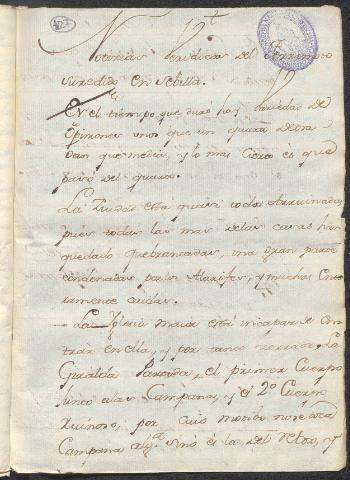 Noticias Veridicas del Terremoto
sucedido en Sevilla.
En el tiempo que duró hay variedad de
Opiniones unos que un quarto de ora
otros que media, y lo mas cierto es que
pasó del quarto.
La Ciudad está quasi toda Arruinada,
pues todas las mas delas casas han
quedado quebrantadas, una gran parte
condenadas por los Alarifes, y muchas ente
ramente caidas.
La Iglesia maior está incapaz de en
trar en ella, y por tanto zerrada. La
Giralda Partida, el primer Cuerpo
junto alas Campanas, y el 2º Cuerpo
Ruinoso, por cuio motibo no se toca
Campana algª sinó es la del Relox, y